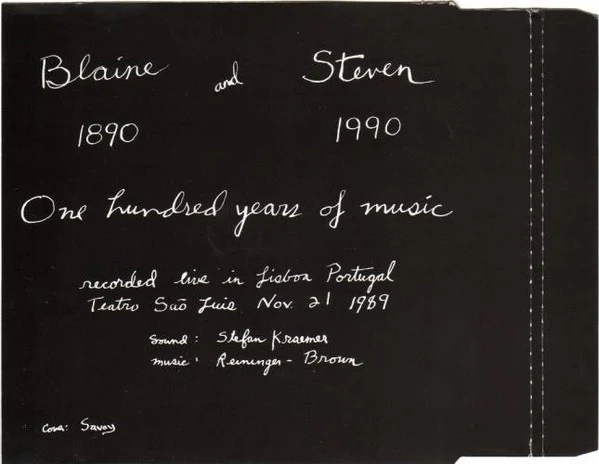 Blaine and Steven
1890 1990
One hundred years of music
recorded live in Lisboa Portugal
Teatro São Luis Nov. 21 1989
Sound: Stefan Kraemer
music: Reininger - Brown
Cover: Savoy